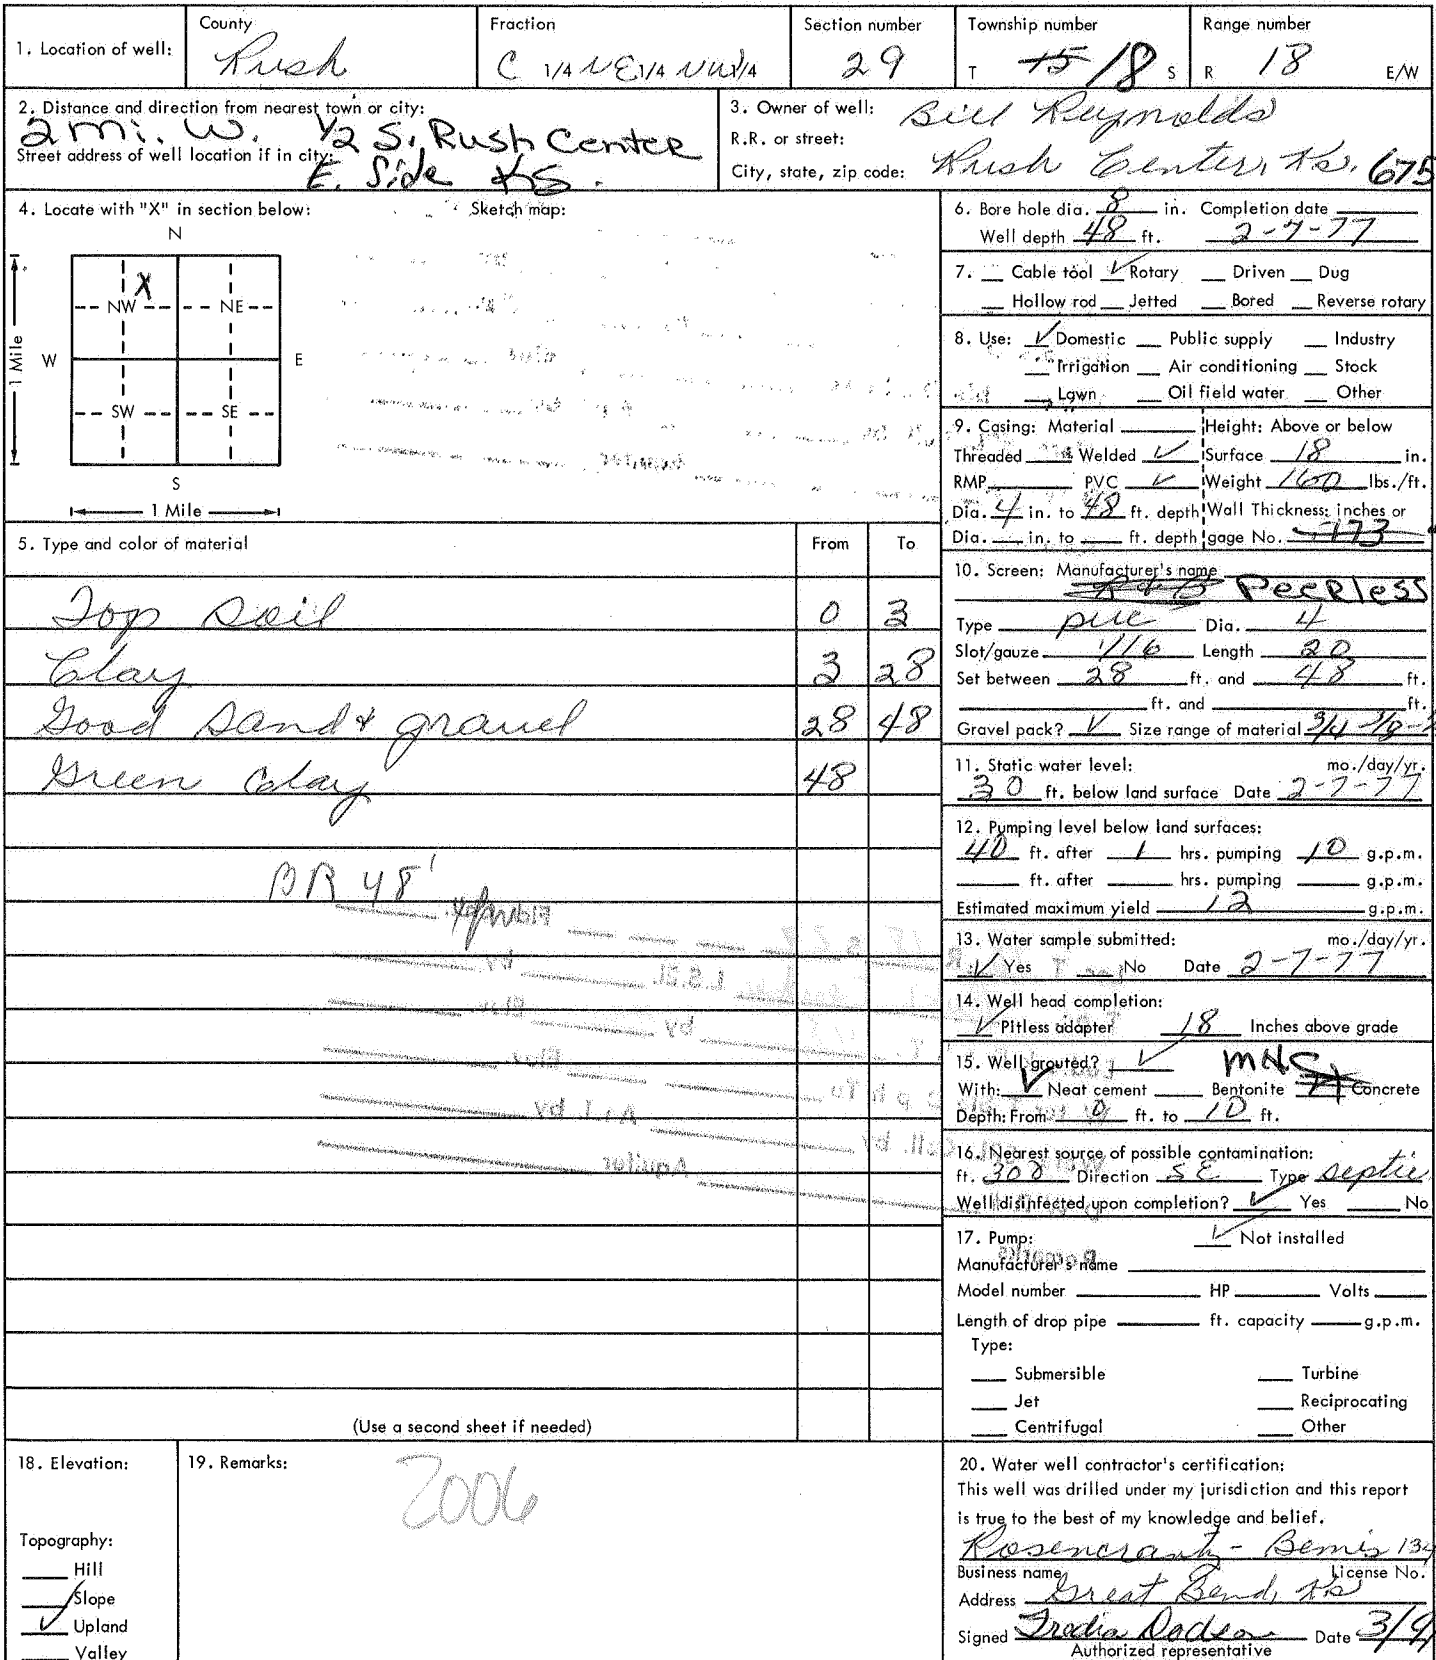 1. Location of well: County Rush Fraction C 1/4 NE 1/4 NW 1/4 Section number 29 Township number T 15 18 S Range number R 18 E/W
2. Distance and direction from nearest town or city: 2 mi. W. 1/2 S. Rush Center
Street address of well location if in city: E. Side KS.
3. Owner of well: Bill Reynolds
R.R. or street:
City, state, zip code: Rush Center, Ks. 675
4. Locate with "X" in section below: Sketch map:
N
X
NW NE
W E
SW SE
S
1 Mile
1 Mile
5. Type and color of material From To
Top Soil 0 3
Clay 3 28
Good Sand & gravel 28 48
Green Clay 48
BR 48'
(Use a second sheet if needed)
6. Bore hole dia. 8 in. Completion date
Well depth 48 ft. 2-7-77
7. Cable tool ✓ Rotary Driven Dug
Hollow rod Jetted Bored Reverse rotary
8. Use: ✓ Domestic Public supply Industry
Irrigation Air conditioning Stock
Lawn Oil field water Other
9. Casing: Material Height: Above or below
Threaded Welded ✓ Surface 18 in.
RMP PVC ✓ Weight 160 lbs./ft.
Dia. 4 in. to 48 ft. depth Wall Thickness: inches or
Dia. in. to ft. depth gage No. 173
10. Screen: Manufacturer's name
Peerless
Type PVC Dia. 4
Slot/gauze 1/16 Length 20
Set between 28 ft. and 48 ft.
ft. and ft.
Gravel pack? ✓ Size range of material 3/4 3/8
11. Static water level: mo./day/yr.
30 ft. below land surface Date 2-7-77
12. Pumping level below land surfaces:
40 ft. after 1 hrs. pumping 10 g.p.m.
ft. after hrs. pumping g.p.m.
Estimated maximum yield 12 g.p.m.
13. Water sample submitted: mo./day/yr.
✓ Yes No Date 2-7-77
14. Well head completion:
✓ Pitless adapter 18 Inches above grade
15. Well grouted? ✓ MNC
With: ✓ Neat cement Bentonite Concrete
Depth: From 0 ft. to 10 ft.
16. Nearest source of possible contamination:
ft. 300 Direction SE Type septic
Well disinfected upon completion? ✓ Yes No
17. Pump: ✓ Not installed
Manufacturer's name
Model number HP Volts
Length of drop pipe ft. capacity g.p.m.
Type:
Submersible Turbine
Jet Reciprocating
Centrifugal Other
18. Elevation:
Topography:
Hill
Slope
✓ Upland
Valley
19. Remarks:
2006
20. Water well contractor's certification:
This well was drilled under my jurisdiction and this report
is true to the best of my knowledge and belief.
Rosencrantz-Bemis 134
Business name License No.
Address Great Bend, Ks
Signed Dodson Date 3/9/
Authorized representative